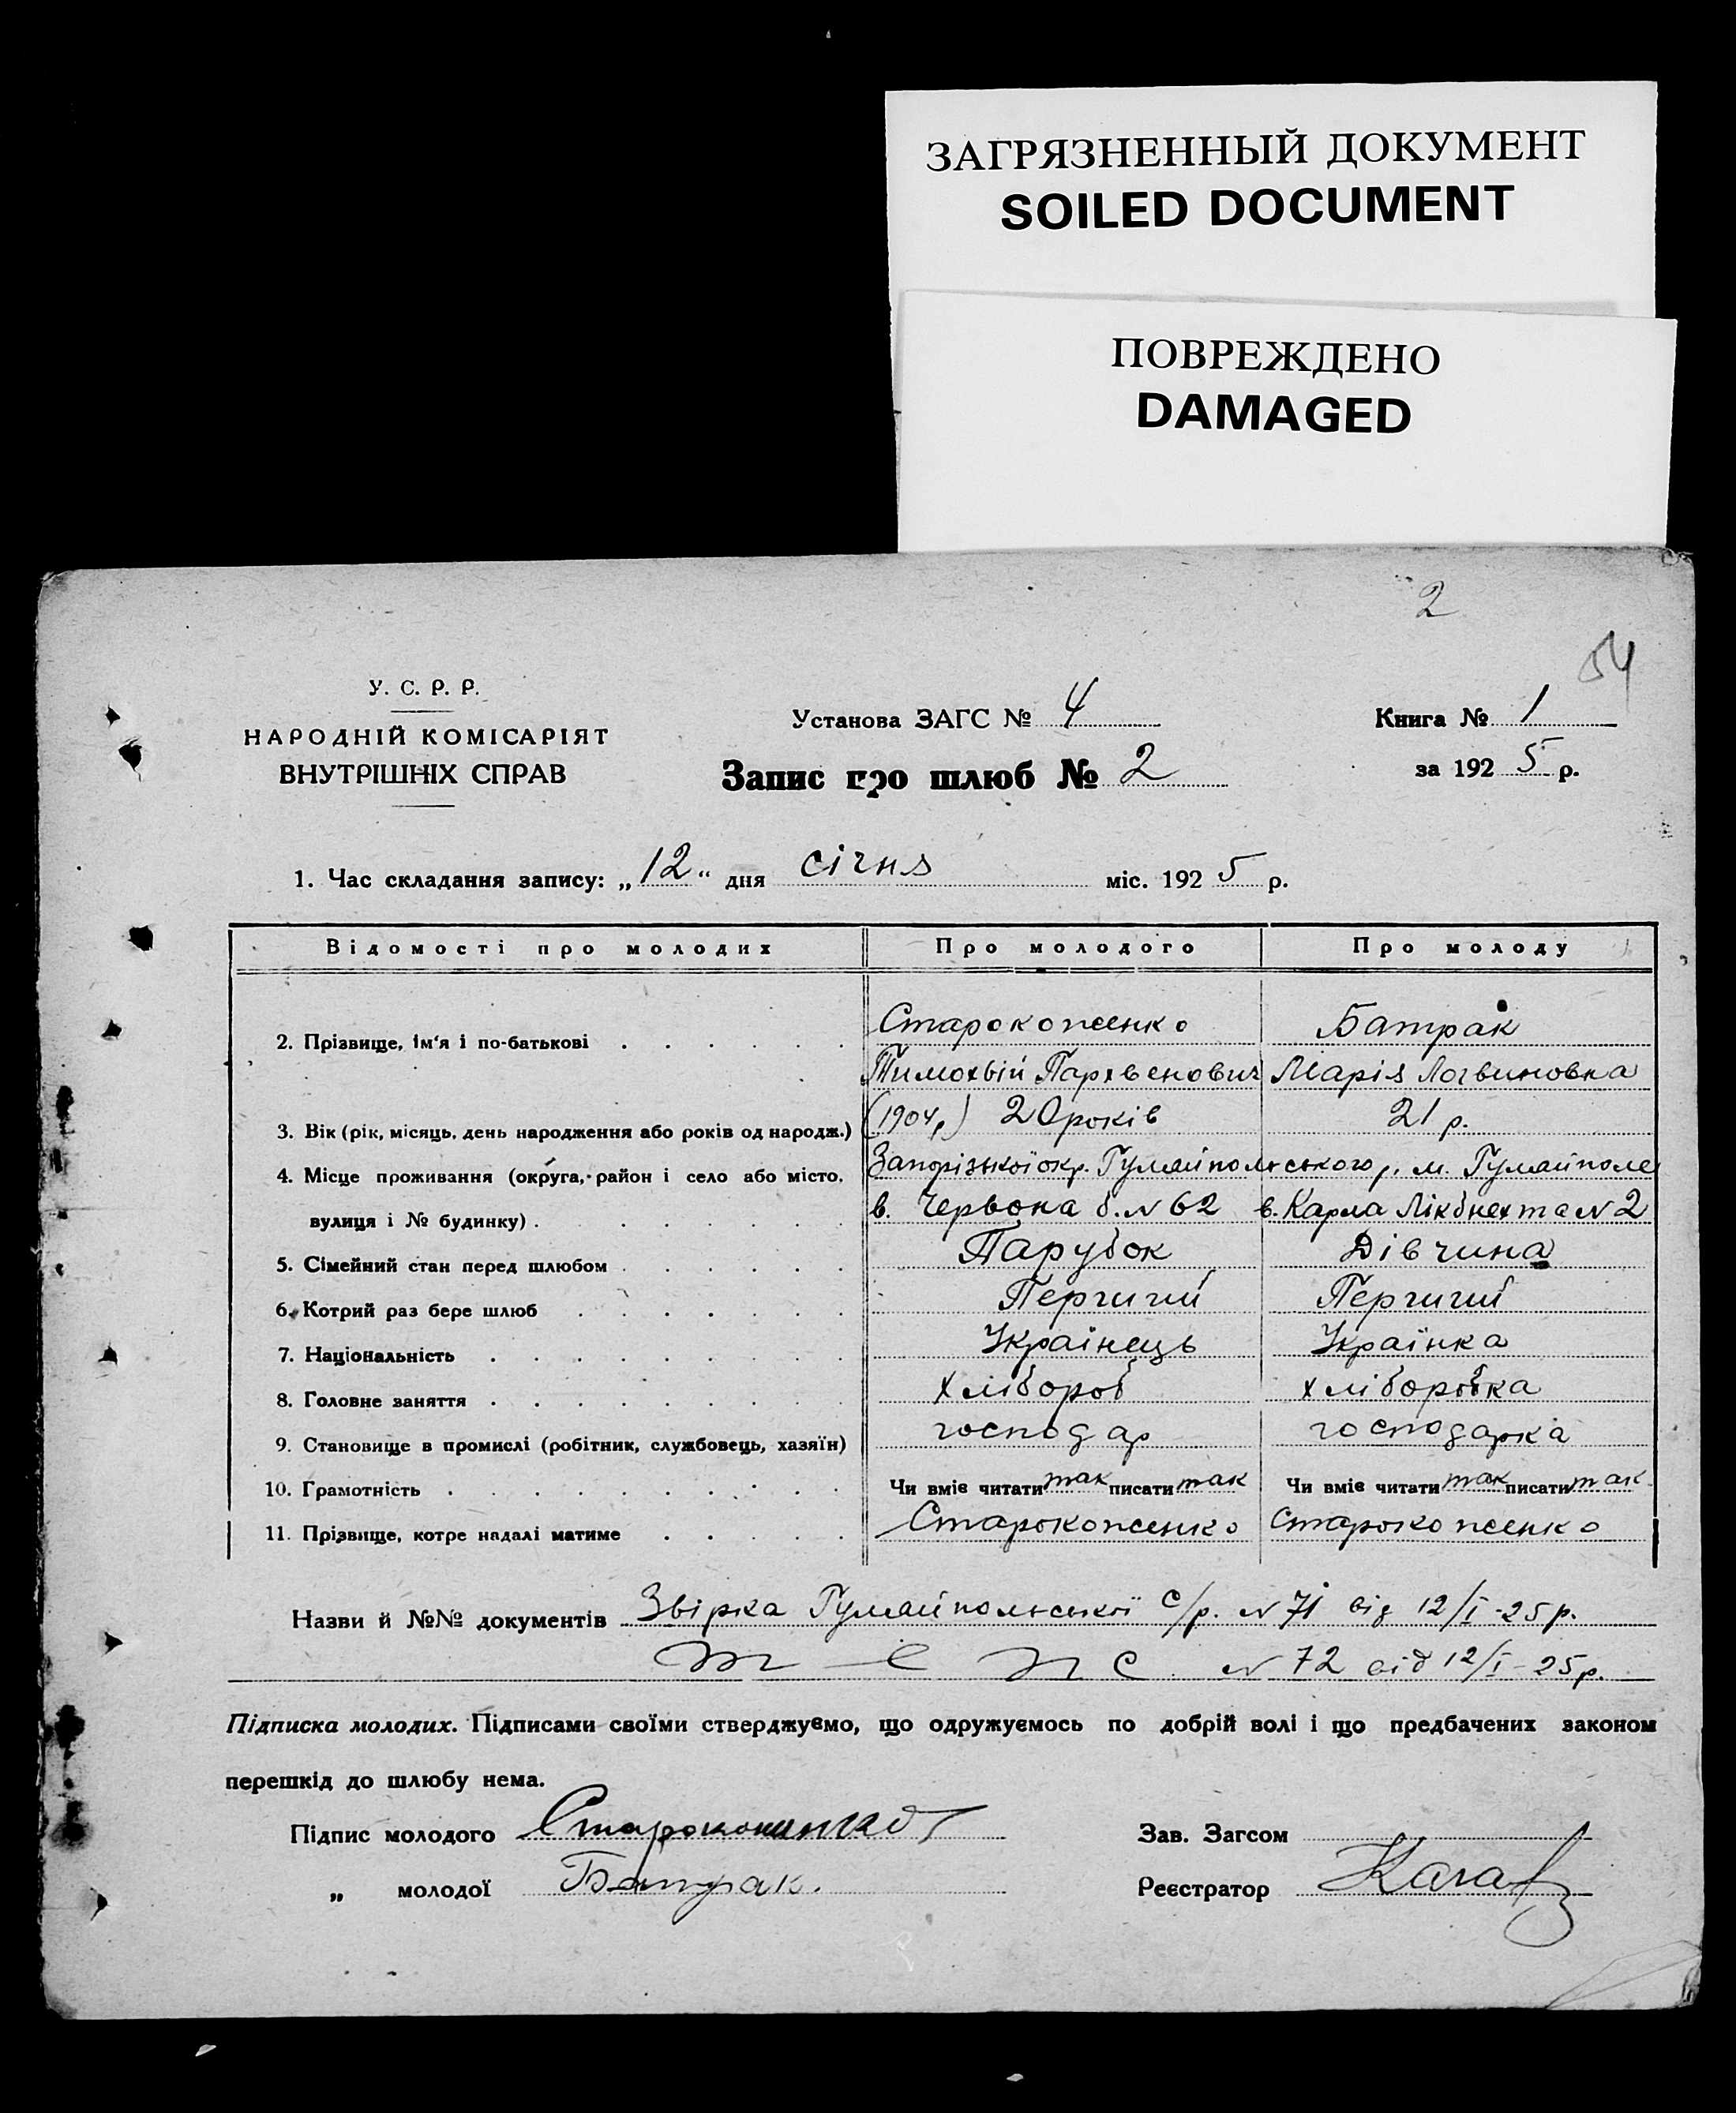 ЗАГРЯЗНЕННЫЙ ДОКУМЕНТ
SOILED DOCUMENT
ПОВРЕЖДЕНО
DAMAGED
2
54
У. С. Р. Р.
НАРОДНІЙ КОМІСАРІЯТ
ВНУТРІШНІХ СПРАВ
Установа ЗАГС № 4
Книга № 1
Запис про шлюб № 2
за 1925 р.
1. Час складання запису: „12“ дня січня міс. 1925 р.
Відомості про молодих Про молодого Про молоду
2. Прізвище, ім'я і по-батькові Старокоженко Батрак
Тимохвій Пархвенович Марія Логвиновна
3. Вік (рік, місяць, день народження або років од народж.) (1904р) 20 років 21 р.
4. Місце проживання (округа, район і село або місто, Запорізької окр. Гуляйпольського р. м. Гуляйполе
вулиця і № будинку) в. Червона б. № 62 в. Карла Лікбнехта № 2
5. Сімейний стан перед шлюбом Парубок Дівчина
6. Котрий раз бере шлюб Перчий Перчий
7. Національність Українець Українка
8. Головне заняття хлібороб хліборобка
9. Становище в промислі (робітник, службовець, хазяїн) господар господарка
10. Грамотність Чи вміє читати так писати так Чи вміє читати так писати так
11. Прізвище, котре надалі матиме Старокоженко Старокоженко
Назви й №№ документів Звірка Гуляйпольської с/р. № 71 від 12/I-25р.
№ 72 від 12/I-25р.
Підписка молодих. Підписами своїми стверджуємо, що одружуємось по добрій волі і що предбачених законом
перешкід до шлюбу нема.
Підпис молодого Старокоженко Зав. Загсом
„ молодої Батрак. Реєстратор